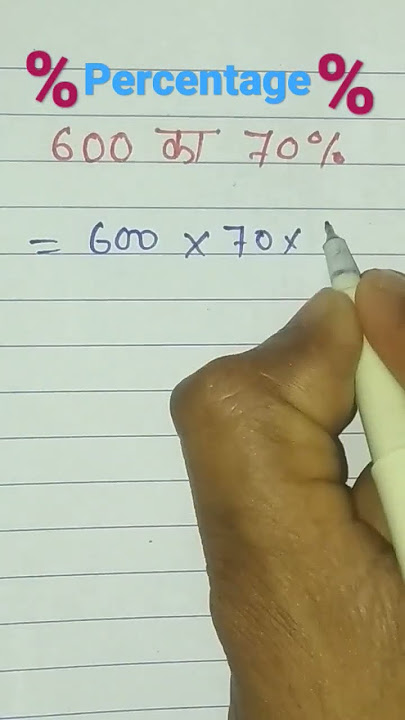 % Percentage %
600 का 70%
= 600 × 70 ×